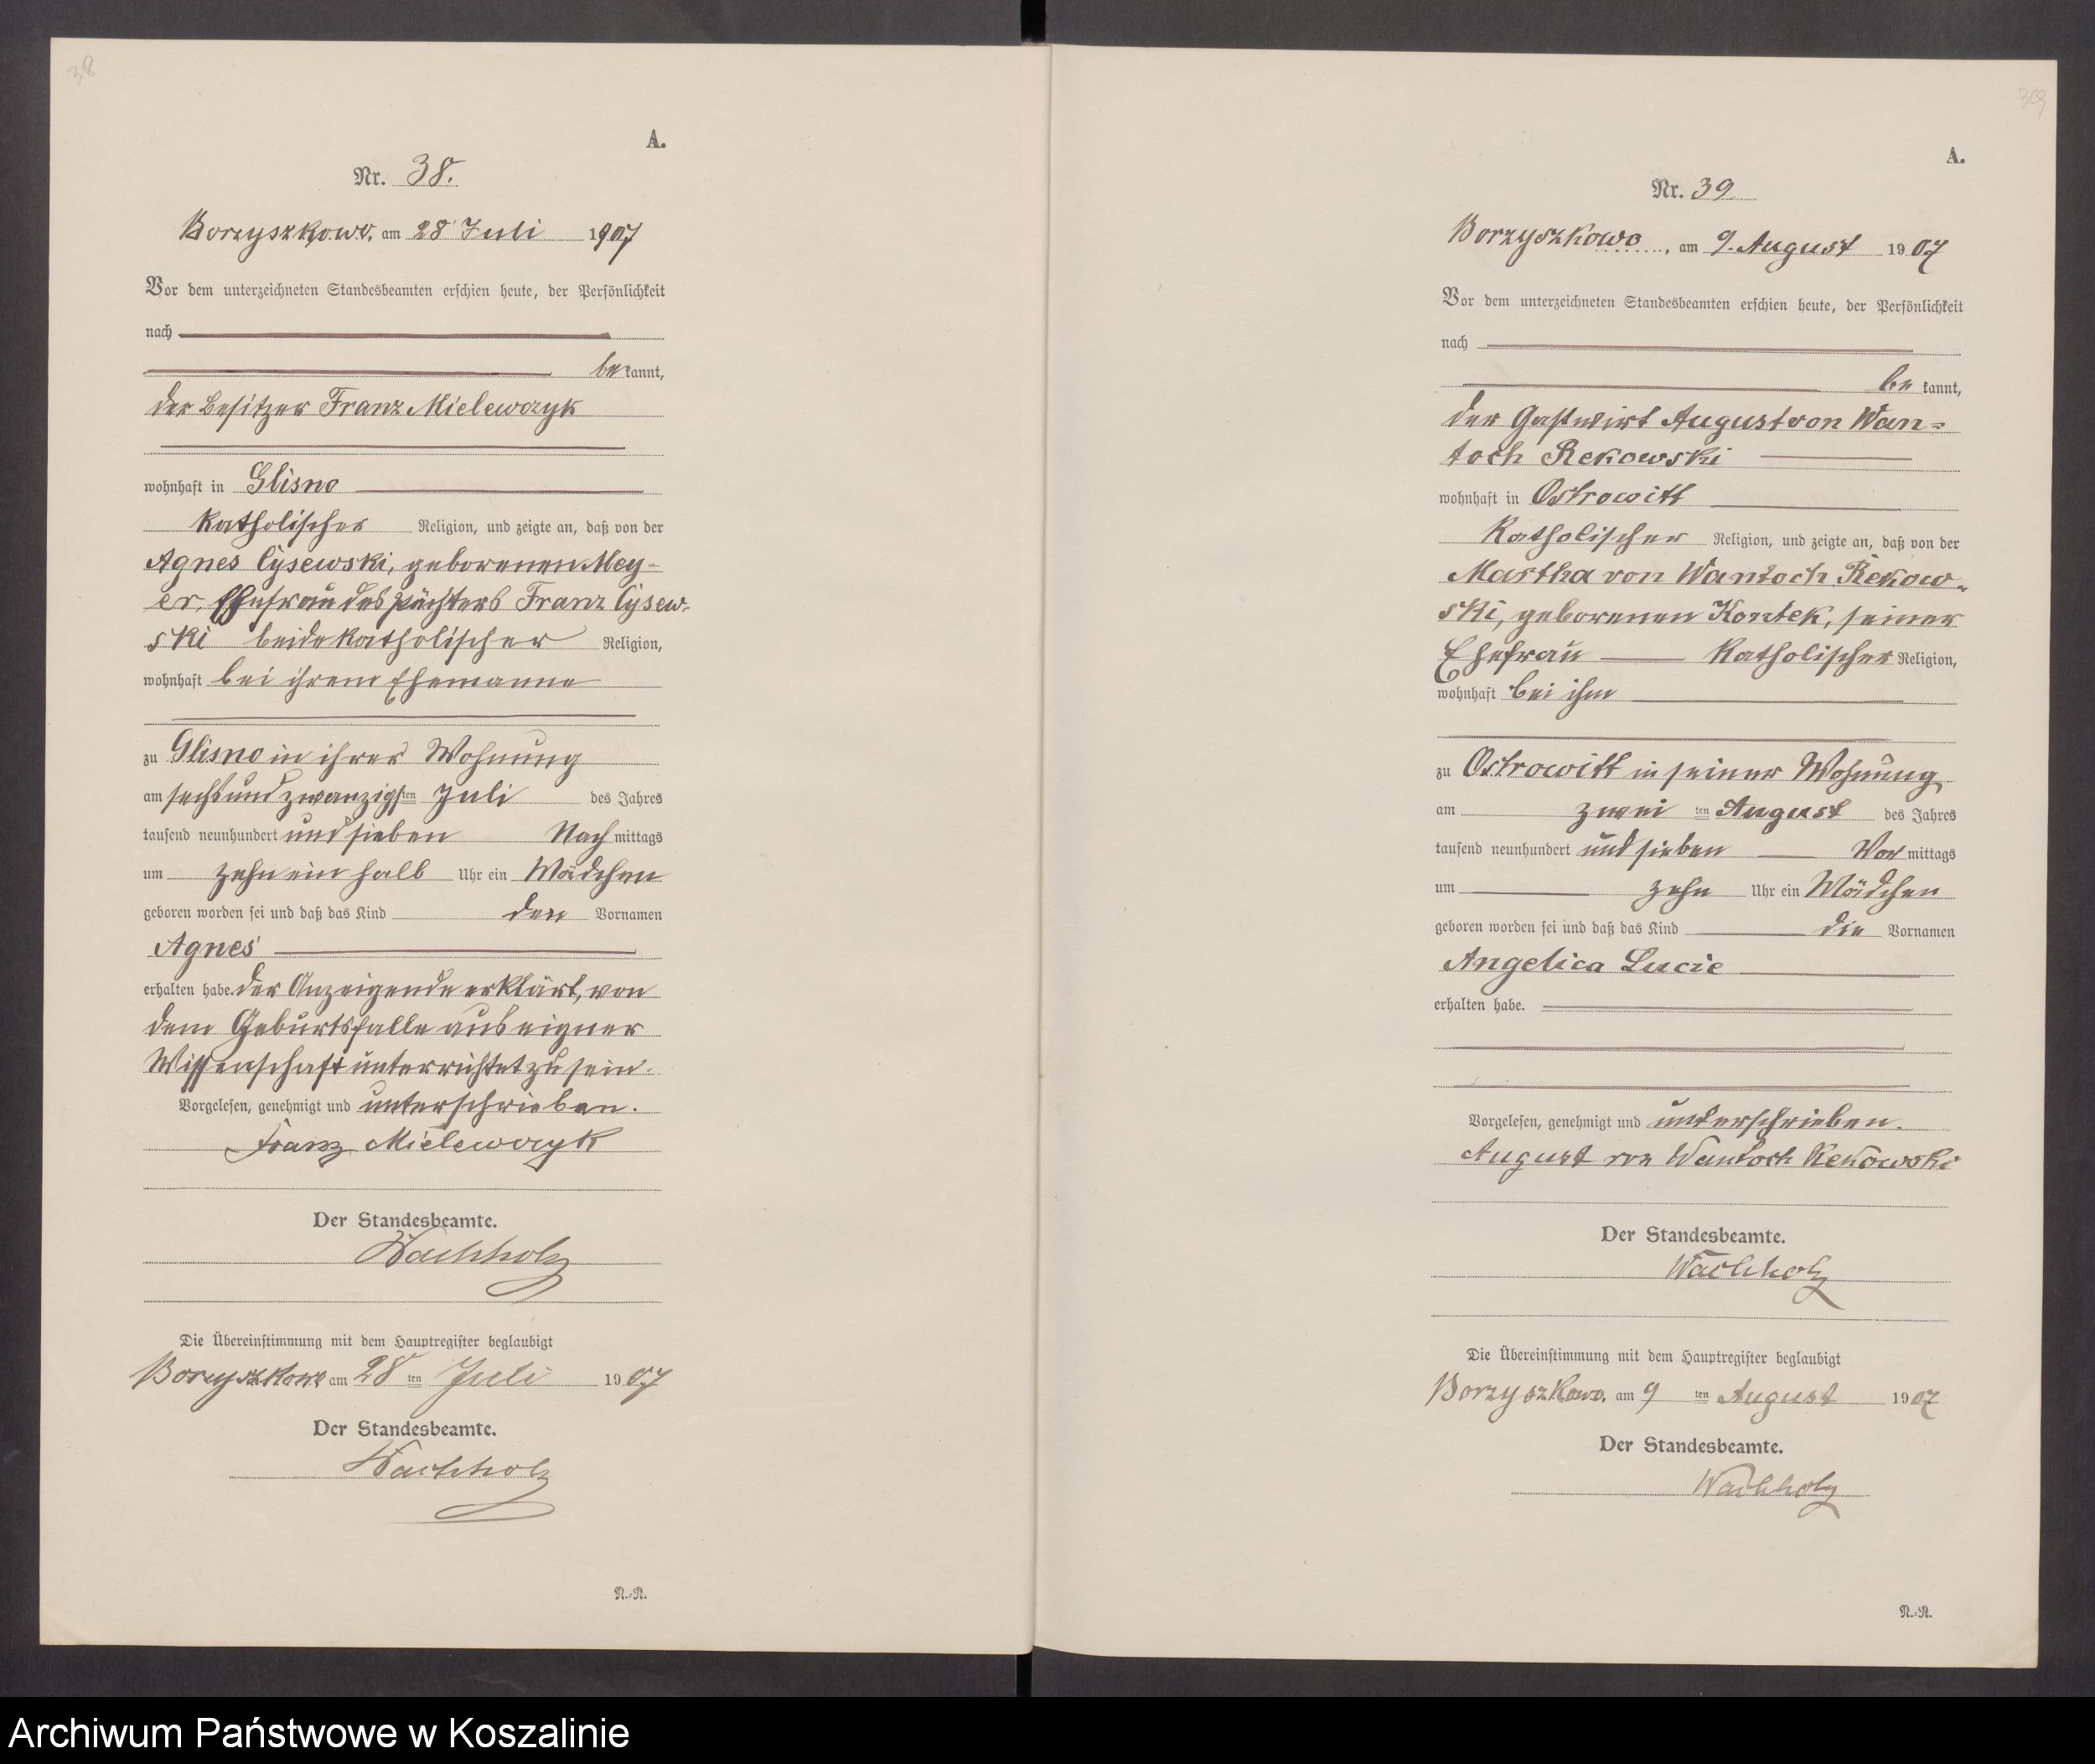 38
A.
Nr. 38.
Borzyszkowo, am 28 Juli 1907
Vor dem unterzeichneten Standesbeamten erschien heute, der Persönlichkeit
nach
be kannt,
der Besitzer Franz Mielewczyk
wohnhaft in Glisno
katholischer Religion, und zeigte an, daß von der
Agnes Cysewski, geborenen Mey-
er, Ehefrau des Pächters Franz Cysew-
ski beide katholischer Religion,
wohnhaft bei ihrem Ehemanne
zu Glisno in ihrer Wohnung
am sechsundzwanzigsten Juli des Jahres
tausend neunhundert und sieben Nach mittags
um zehn ein halb Uhr ein Mädchen
geboren worden sei und daß das Kind den Vornamen
Agnes
erhalten habe. der Anzeigende erklärt, von
dem Geburtsfalle aus eigner
Wissenschaft unterrichtet zu sein.
Vorgelesen, genehmigt und unterschrieben.
Franz Mielewczyk
Der Standesbeamte.
Wachholz
Die Übereinstimmung mit dem Hauptregister beglaubigt
Borzyszkowo am 28 ten Juli 1907
Der Standesbeamte.
Wachholz
N.-N.
39
A.
Nr. 39
Borzyszkowo, am 9. August 1907
Vor dem unterzeichneten Standesbeamten erschien heute, der Persönlichkeit
nach
be kannt,
der Gastwirt August von Wan=
toch Rekowski
wohnhaft in Ostrowitt
katholischer Religion, und zeigte an, daß von der
Martha von Wantoch Rekow-
ski, geborenen Kontek, seiner
Ehefrau katholischer Religion,
wohnhaft bei ihm
zu Ostrowitt in seiner Wohnung
am zwei ten August des Jahres
tausend neunhundert und sieben Vor mittags
um zehn Uhr ein Mädchen
geboren worden sei und daß das Kind die Vornamen
Angelica Lucie
erhalten habe.
Vorgelesen, genehmigt und unterschrieben.
August von Wantoch Rekowski
Der Standesbeamte.
Wachholz
Die Übereinstimmung mit dem Hauptregister beglaubigt
Borzyszkowo, am 9 ten August 1907
Der Standesbeamte.
Wachholz
N.-N.
Archiwum Państwowe w Koszalinie